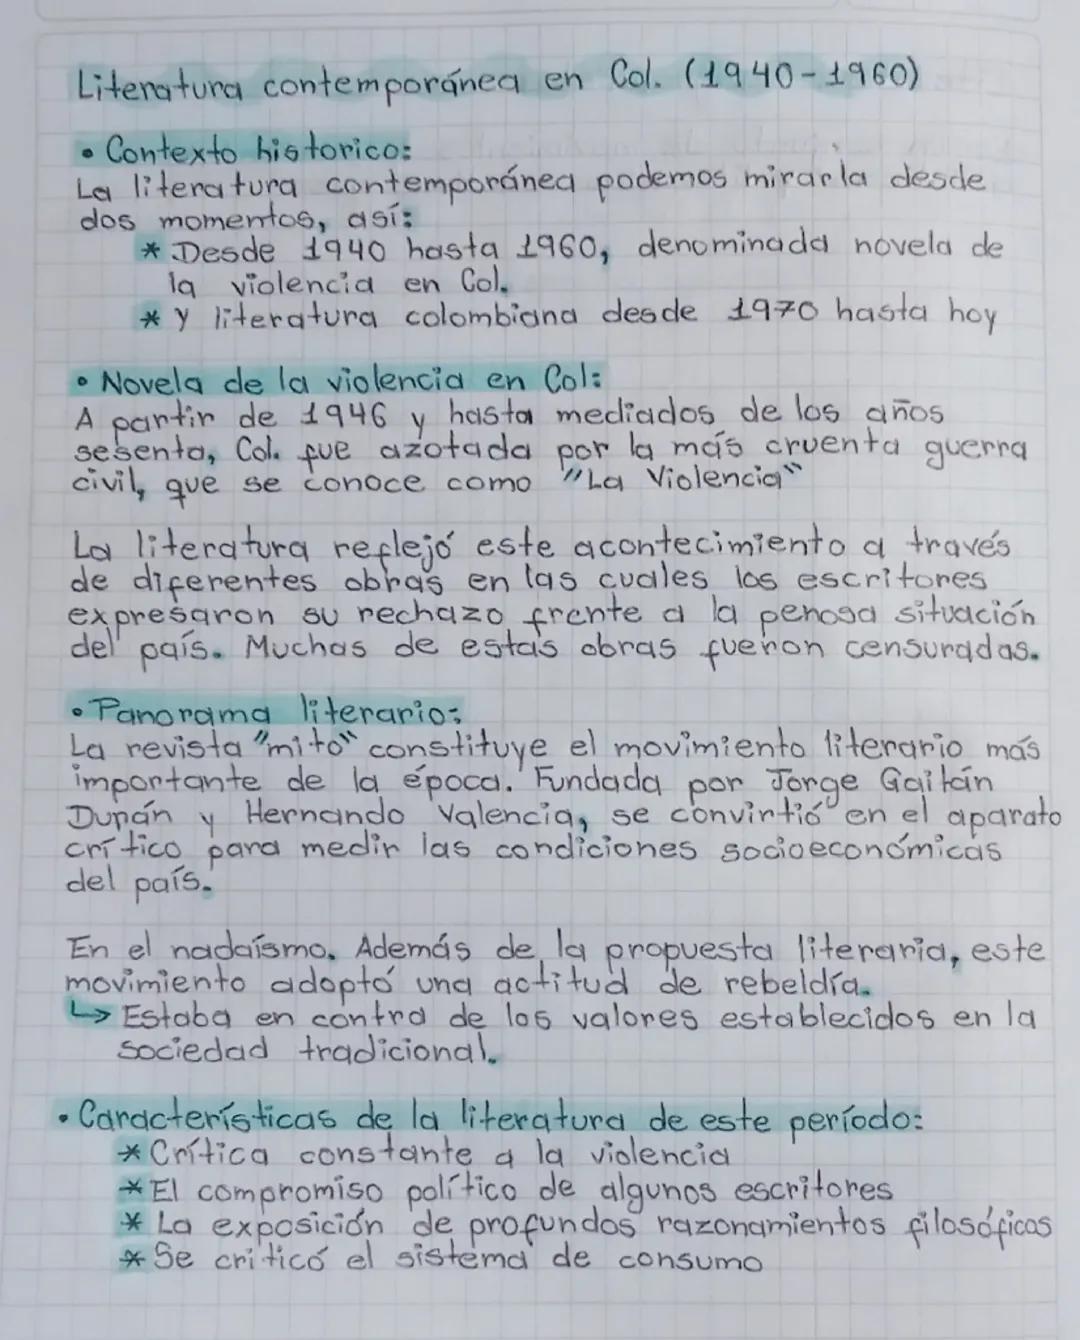 Literatura contemporánea en Col. (1940-1960)
• Contexto historico:
La literatura contemporánea podemos mirarla desde
dos momentos, así:
* Desde 1940 hasta 1960, denominada novela de
la violencia en Col.
* y literatura colombiana desde 1970 hasta hoy
• Novela de la violencia en Col:
A partir de 1946 y hasta mediados de los años
sesenta, Col. fue azotada por la más cruenta guerra
civil, que se conoce como "La Violencia"
La literatura reflejó este acontecimiento a través
de diferentes obras en las cuales los escritores
expresaron su rechazo frente a la penosa situación
del país. Muchas de estas obras fueron censuradas.
• Panorama literario:
La revista "mito" constituye el movimiento literario más
importante de la época. Fundada por Jorge Gaitán
Durán y Hernando Valencia, se convirtió en el aparato
crítico para medir las condiciones socioeconómicas
del país.
En el nadaísmo. Además de la propuesta literaria, este
movimiento adoptó una actitud de rebeldía.
↳ Estaba en contra de los valores establecidos en la
sociedad tradicional.
• Características de la literatura de este período:
* Crítica constante a la violencia
* El compromiso político de algunos escritores
* La exposición de profundos razonamientos filosóficos
* Se criticó el sistema de consumo